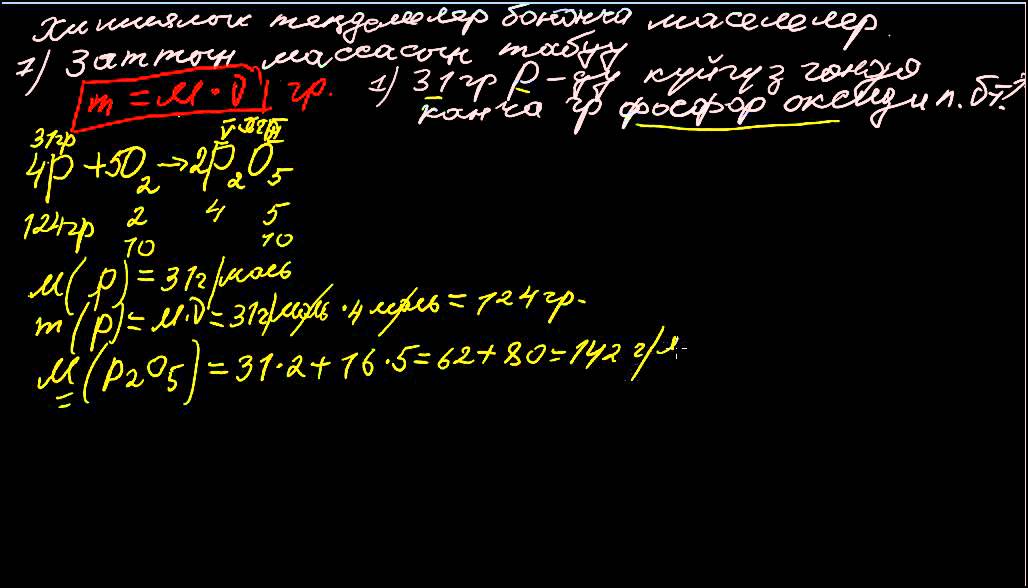 Химиялык теңдемелер боюнча маселелер.
1) Заттын массасын табуу
m = M · ν гр.
1) 31гр P-ду күйгүзгөндө
канча гр фосфор оксиди п. б-т?
31гр V II
4P + 5O2 → 2P2O5
124гр 2 4 5
10 10
M(P) = 31г/моль
m(P) = M·ν = 31г/моль · 4 моль = 124гр.
M(P2O5) = 31·2 + 16·5 = 62 + 80 = 142 г/м